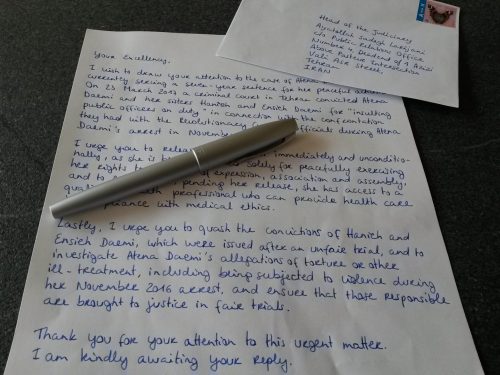 Head of the Judiciary
Ayatollah Sadegh Larijani
c/o Public Relations Office
Number 4, Deadend of 1 Azizi
Above Pasteur Intersection
Vali Asr Street,
Tehran
IRAN
Your Excellency.
I wish to draw your attention to the case of Atena
currently serving a seven-year sentence for her peaceful
On 23 March 2017 a criminal court in Tehran convicted Atena
Daemi and her sisters Hanieh and Ensieh Daemi for "insulting
public officers on duty" in connection with the confrontation
they had with the Revolutionary officials during Atena
Daemi's arrest in November
I urge you to immediately and unconditio-
nally, as she is solely for peacefully exercising
her rights to of expression, association and assembly,
and to pending her release, she has access to a
health professional who can provide health care
with medical ethics.
Lastly, I urge you to quash the convictions of Hanieh and
Ensieh Daemi, which were issued after an unfair trial, and to
investigate Atena Daemi's allegations of torture or other
ill-treatment, including being subjected to violence during
her November 2016 arrest, and ensure that those responsible
are brought to justice in fair trials.
Thank you for your attention to this urgent matter.
I am kindly awaiting your reply.